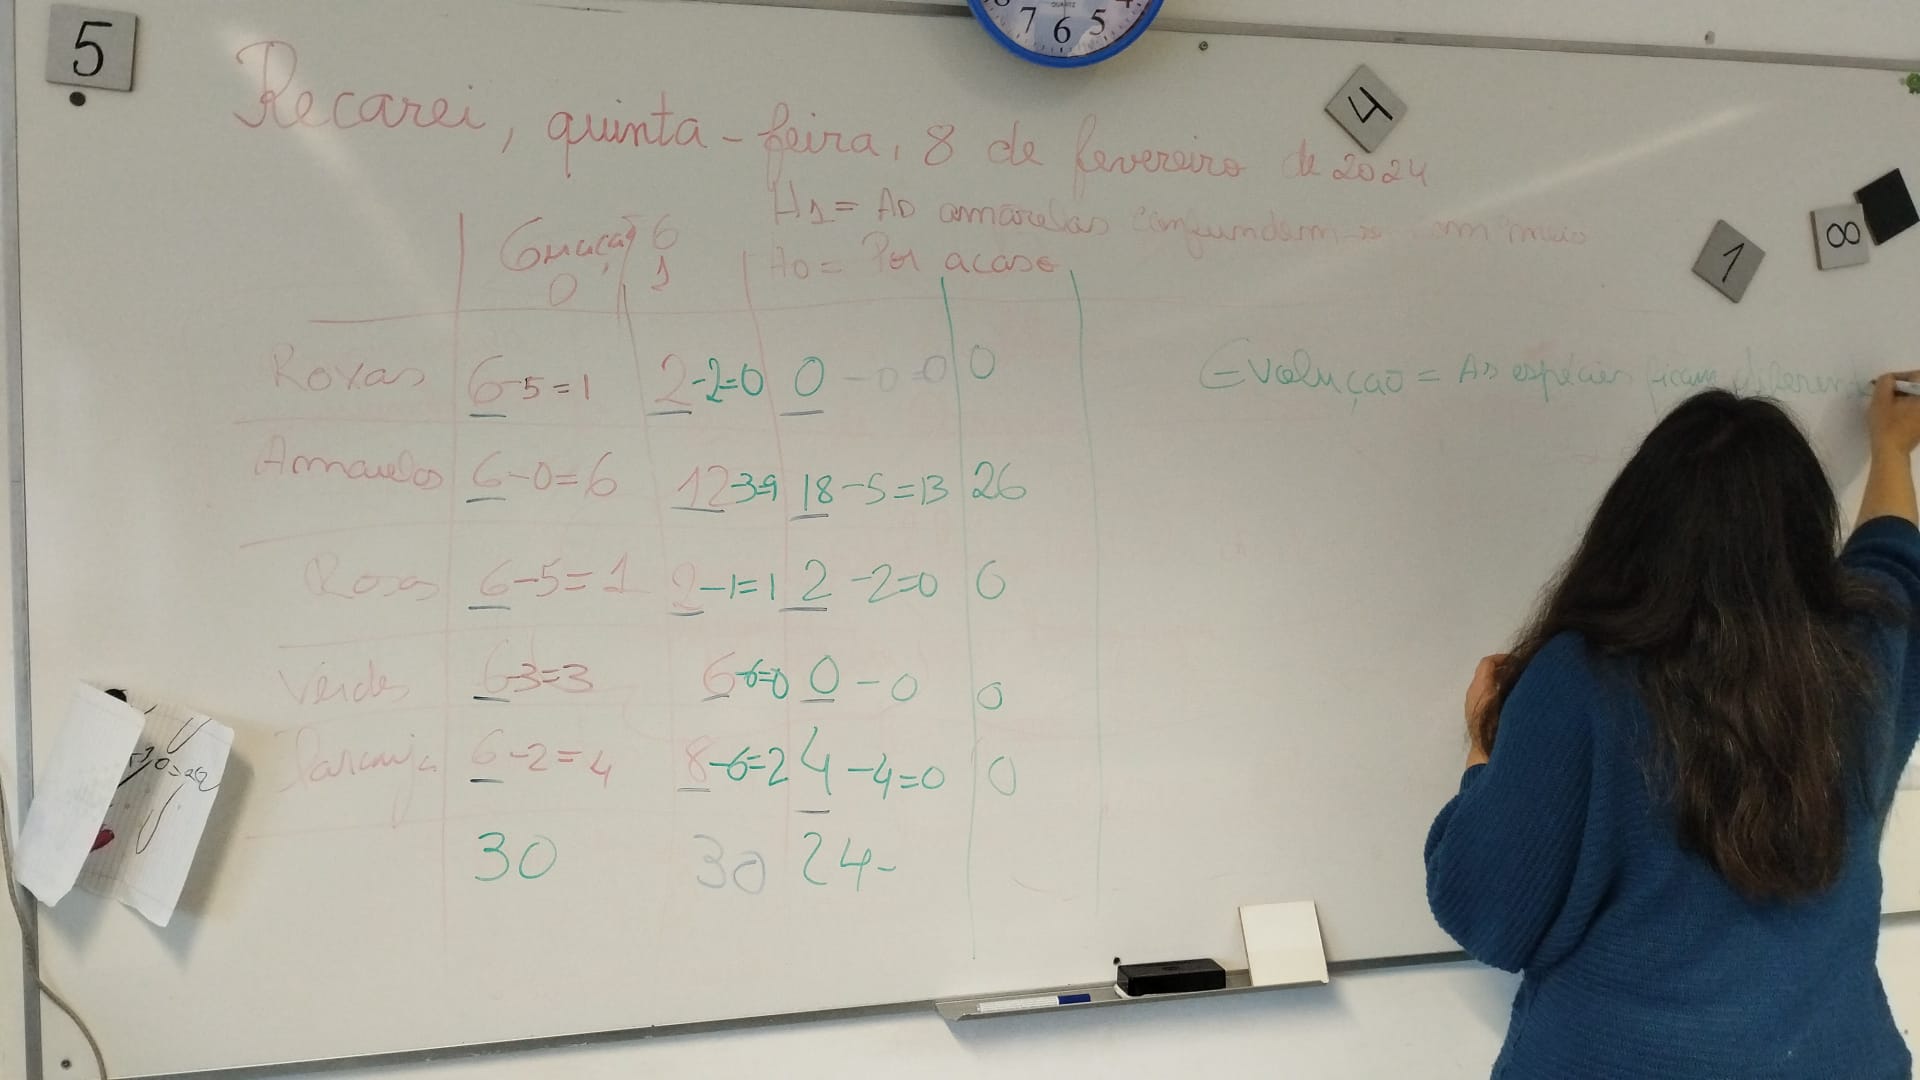 5
7 6 5
4
Recarei, quinta-feira, 8 de fevereiro de 2024
H1 = As amarelas confundem-se com meio
H0 = Por acaso
1
8
Geração G
0 1
Roxas 6-5=1 2-2=0 0 -0=0 0
Amarelas 6-0=6 12-3=9 18-5=13 26
Rosas 6-5=1 2-1=1 2-2=0 0
Verdes 6-3=3 6-6=0 0-0 0
Laranja 6-2=4 8-6=2 4-4=0 0
30 30 24-
Evolução = As espécies ficam diferen